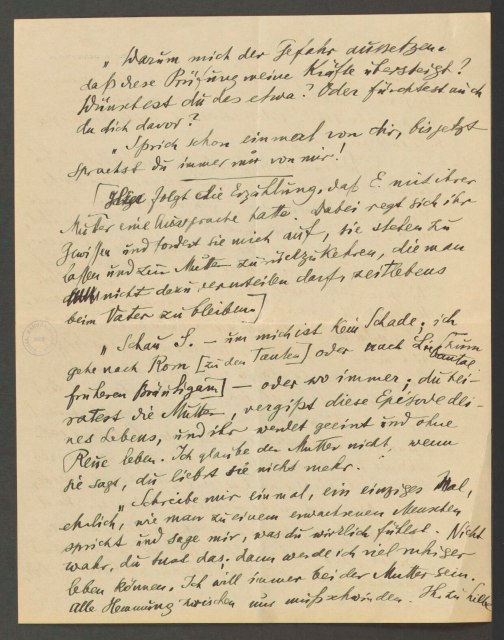 „Warum mich der Gefahr aussetzen,
daß diese Prüfung meine Kräfte übersteigt?
Wünschest du das etwa? Oder fürchtest auch
du dich davor?
„Sprich schon einmal von dir, bis jetzt
sprachst du immer nur von mir!
[Hier folgt die Erzählung, daß E. mit ihrer
Mutter eine Aussprache hatte. Dabei regt sich ihr
Gewissen und fordert sie mich auf, sie stehen zu
lassen und zur Mutter zurückzukehren, die man
nicht dazu verurteilen darf, zeitlebens
beim Vater zu bleiben.]
„Schau S. – um mich ist kein Schade; ich
gehe nach Rom [zu den Tanten] oder nach zum
früheren Bräutigam] – oder wo immer; du hei-
ratest die Mutter, vergißt diese Episode dei-
nes Lebens, und ihr werdet geeint und ohne
Reue leben. Ich glaube der Mutter nicht, wenn
sie sagt, du liebst sie nicht mehr.
„Schreibe mir einmal, ein einziges Mal,
ehrlich, wie man zu einem erwachsenen Menschen
spricht und sage mir, was du wirklich fühlst. Nicht
wahr, du tust das; dann werde ich viel ruhiger
leben können. Ich will immer bei der Mutter sein.
Alle Hemmung zwischen uns muß schwinden. Ihr zu